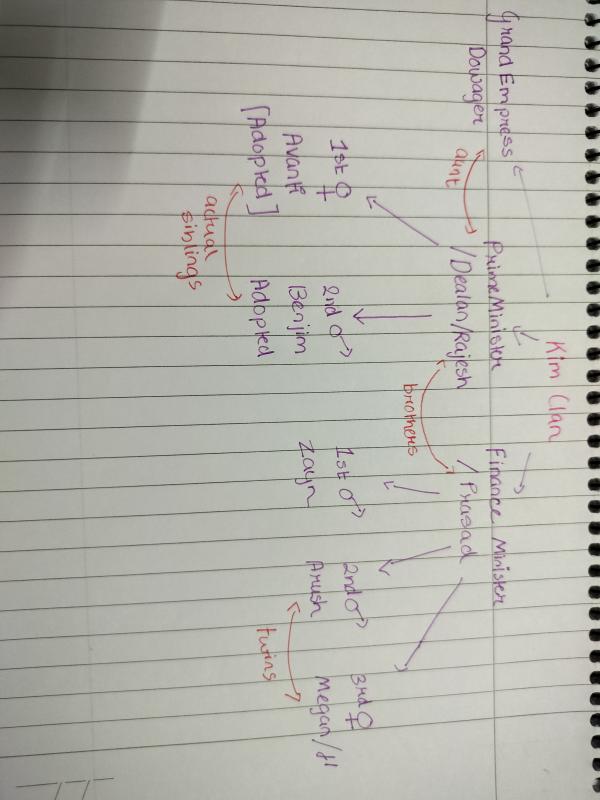 Kim Clan
Grand Empress
Dowager
Prime Minister
/Dealan/Rajesh
Finance Minister
/ Prasad
aunt
brothers
1st ♀
Avanti
[Adopted]
2nd ♂
Benjim
Adopted
1st ♂
Zayn
2nd ♂
Arush
3rd ♀
Megan/
actual
siblings
twins